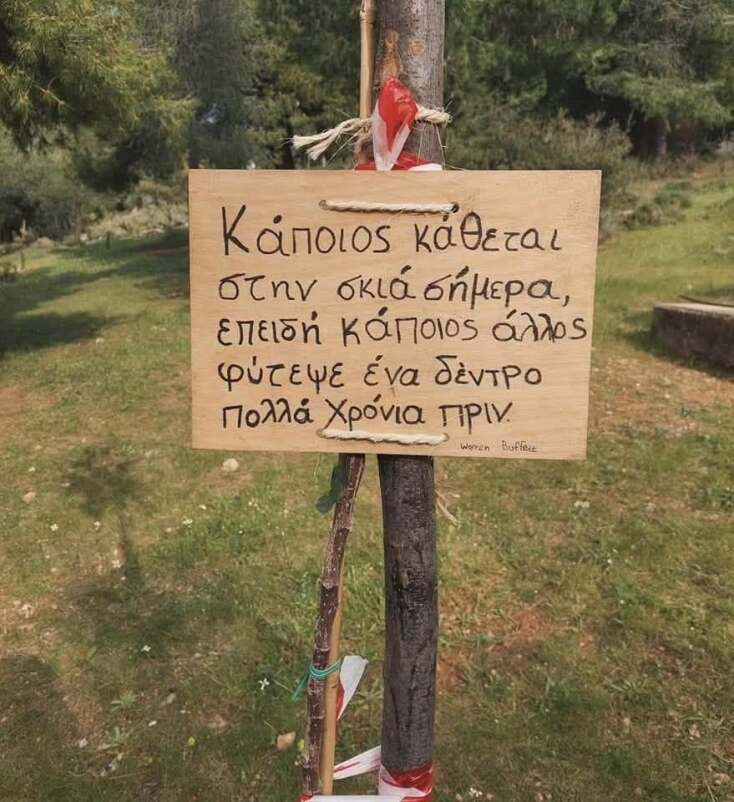 Κάποιος κάθεται
στην σκιά σήμερα,
επειδή κάποιος άλλος
φύτεψε ένα δέντρο
πολλά χρόνια πριν.
Warren Buffett